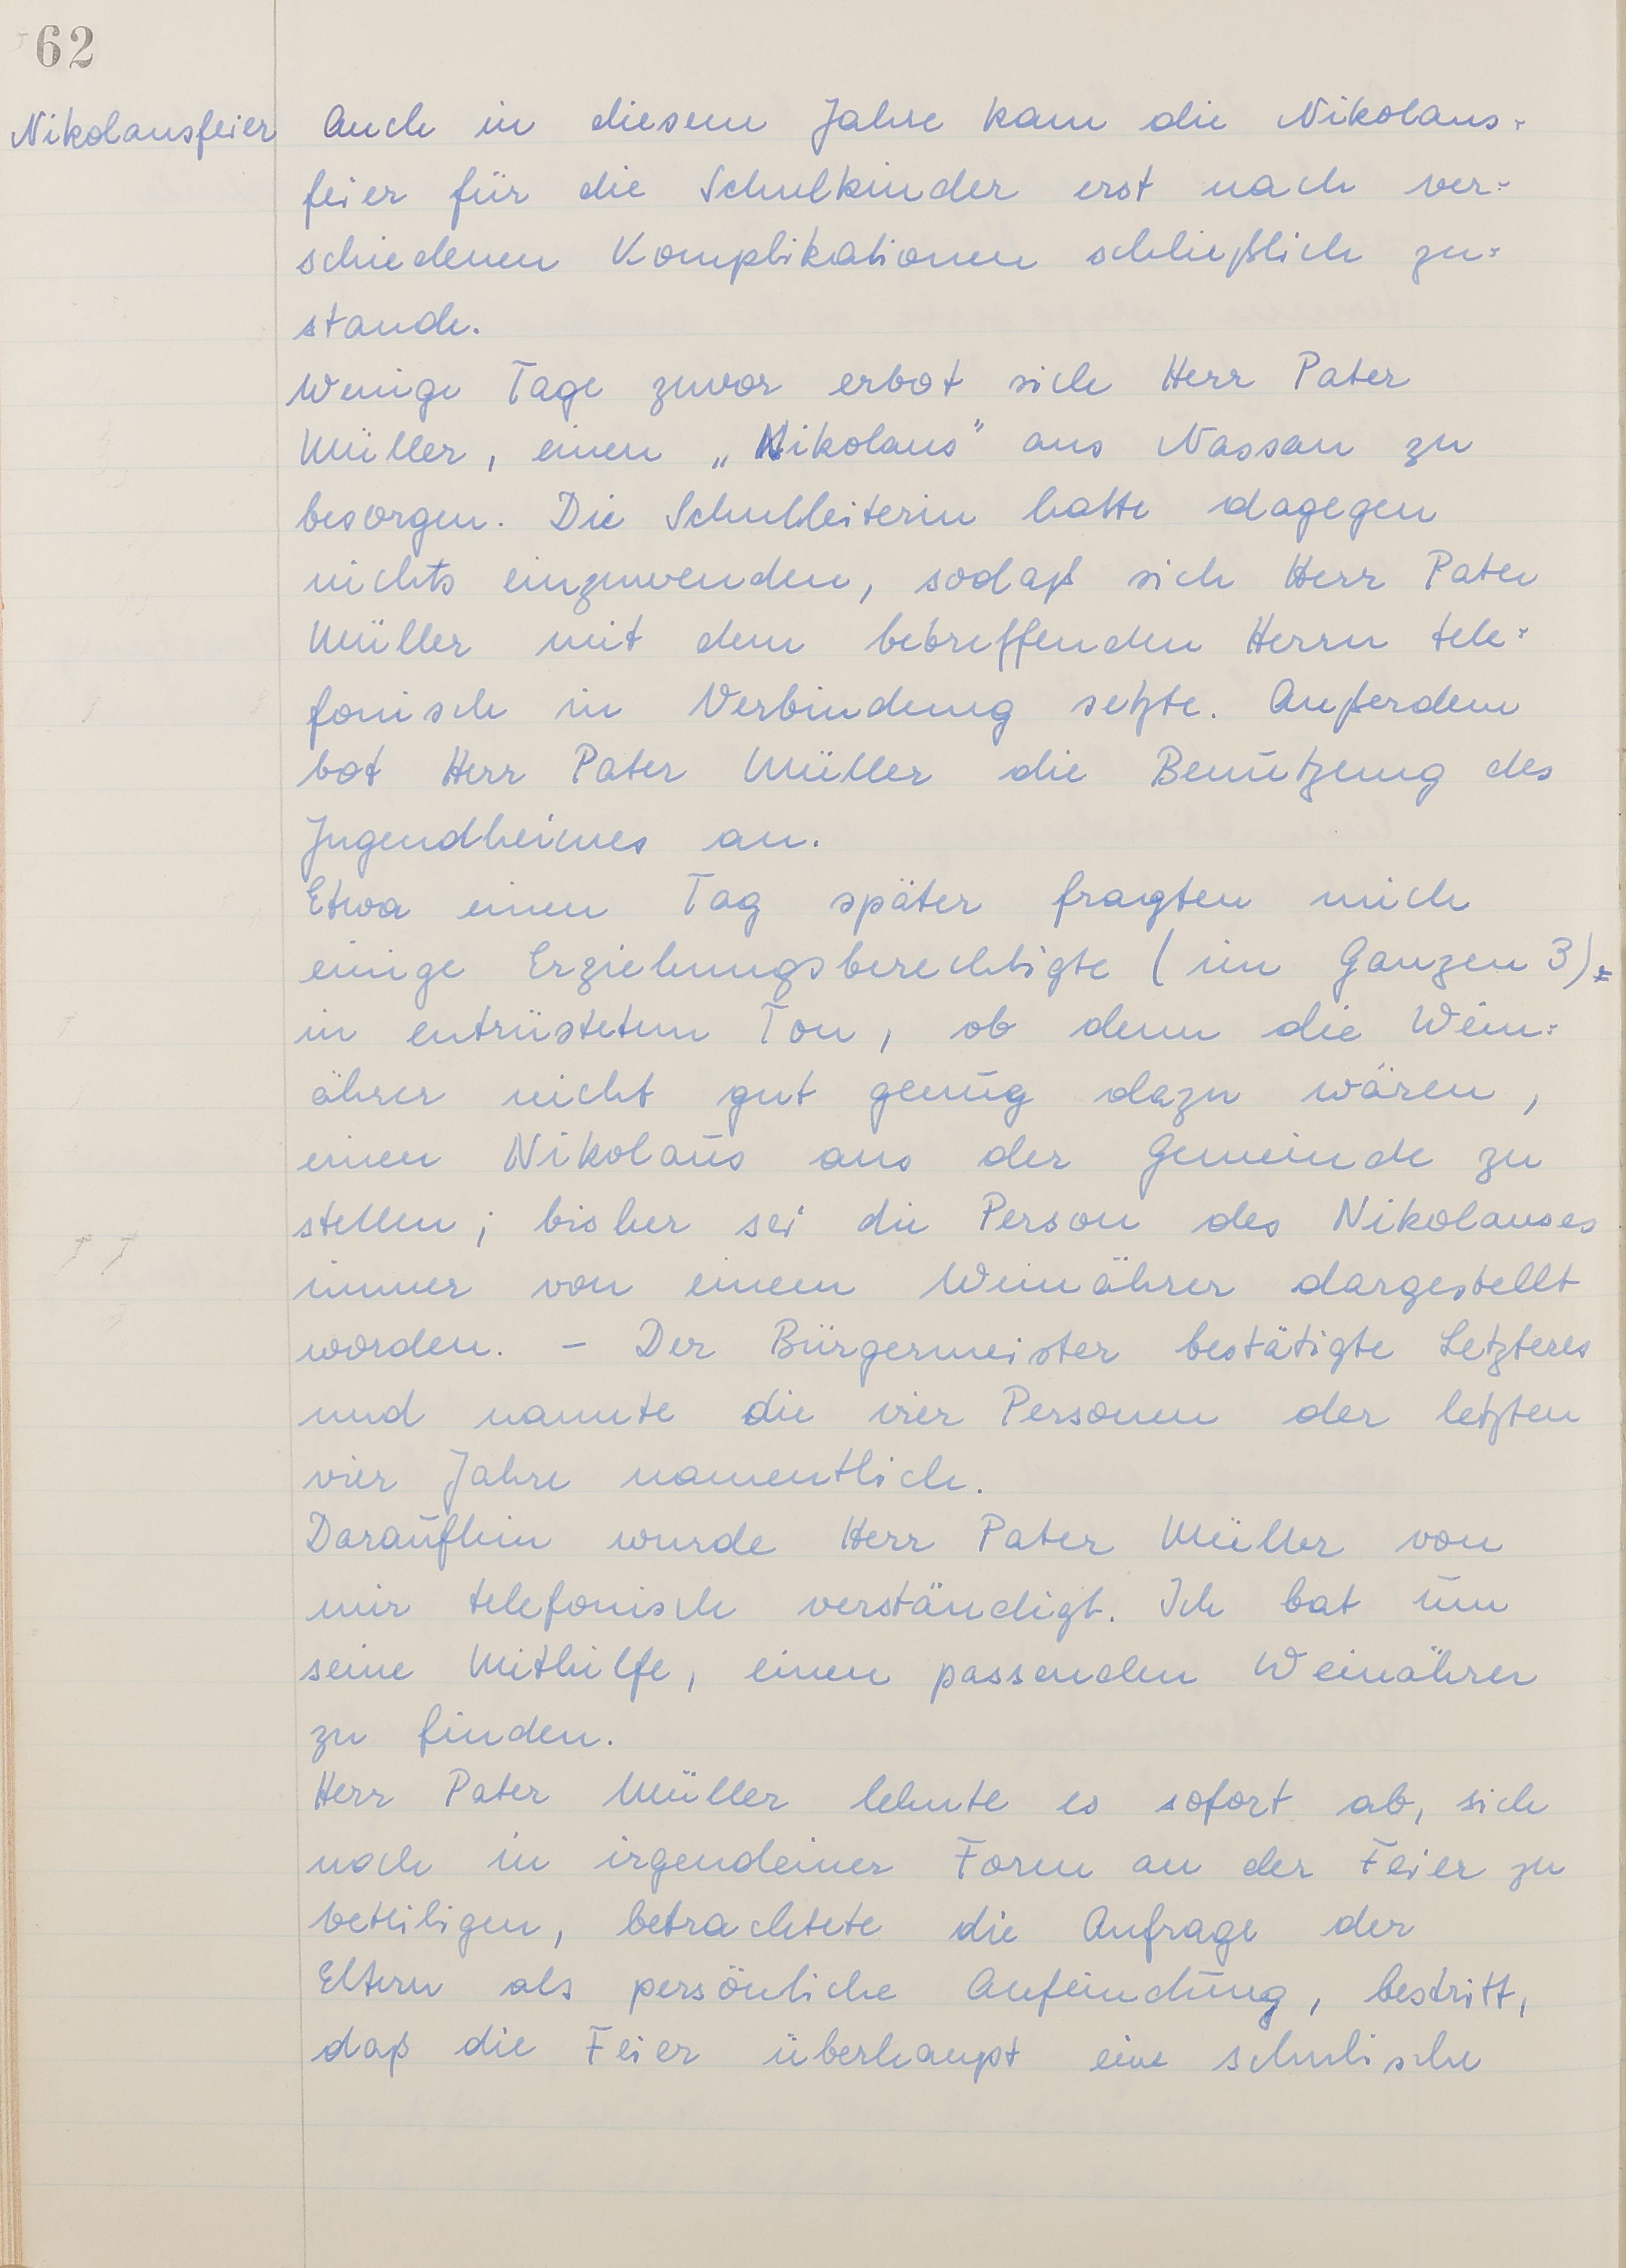 62
Nikolausfeier
Auch in diesem Jahre kam die Nikolaus-
feier für die Schulkinder erst nach ver-
schiedenen Komplikationen schließlich zu-
stande.
Wenige Tage zuvor erbot sich Herr Pater
Müller, einen „Nikolaus" aus Nassau zu
besorgen. Die Schulleiterin hatte dagegen
nichts einzuwenden, sodaß sich Herr Pater
Müller mit dem betreffenden Herrn tele-
fonisch in Verbindung setzte. Außerdem
bot Herr Pater Müller die Benutzung des
Jugendheimes an.
Etwa einen Tag später fragten mich
einige Erziehungsberechtigte (im Ganzen 3)
in entrüstetem Ton, ob denn die Wein-
ährer nicht gut genug dazu wären,
einen Nikolaus aus der Gemeinde zu
stellen; bisher sei die Person des Nikolauses
immer von einem Weinährer dargestellt
worden. - Der Bürgermeister bestätigte Letzteres
und nannte die vier Personen der letzten
vier Jahre namentlich.
Daraufhin wurde Herr Pater Müller von
mir telefonisch verständigt. Ich bat um
seine Mithilfe, einen passenden Weinährer
zu finden.
Herr Pater Müller lehnte es sofort ab, sich
noch in irgendeiner Form an der Feier zu
beteiligen, betrachtete die Anfrage der
Eltern als persönliche Anfeindung, bestritt,
daß die Feier überhaupt eine schulische